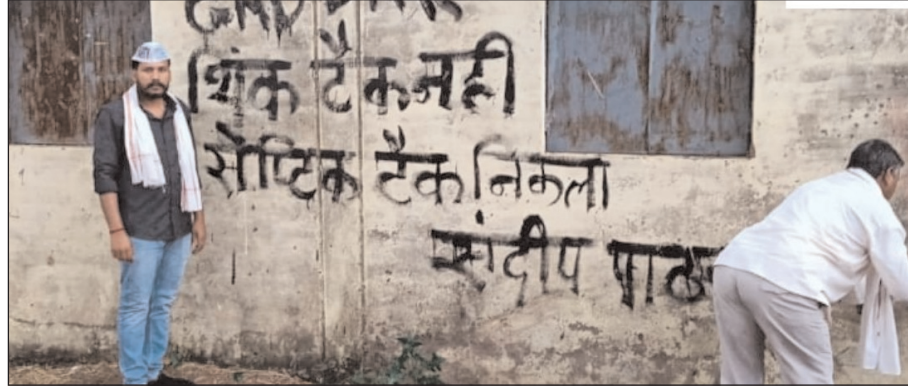 थिंक टैक नही
सेप्टिक टैक निकला
संदीप पाठ